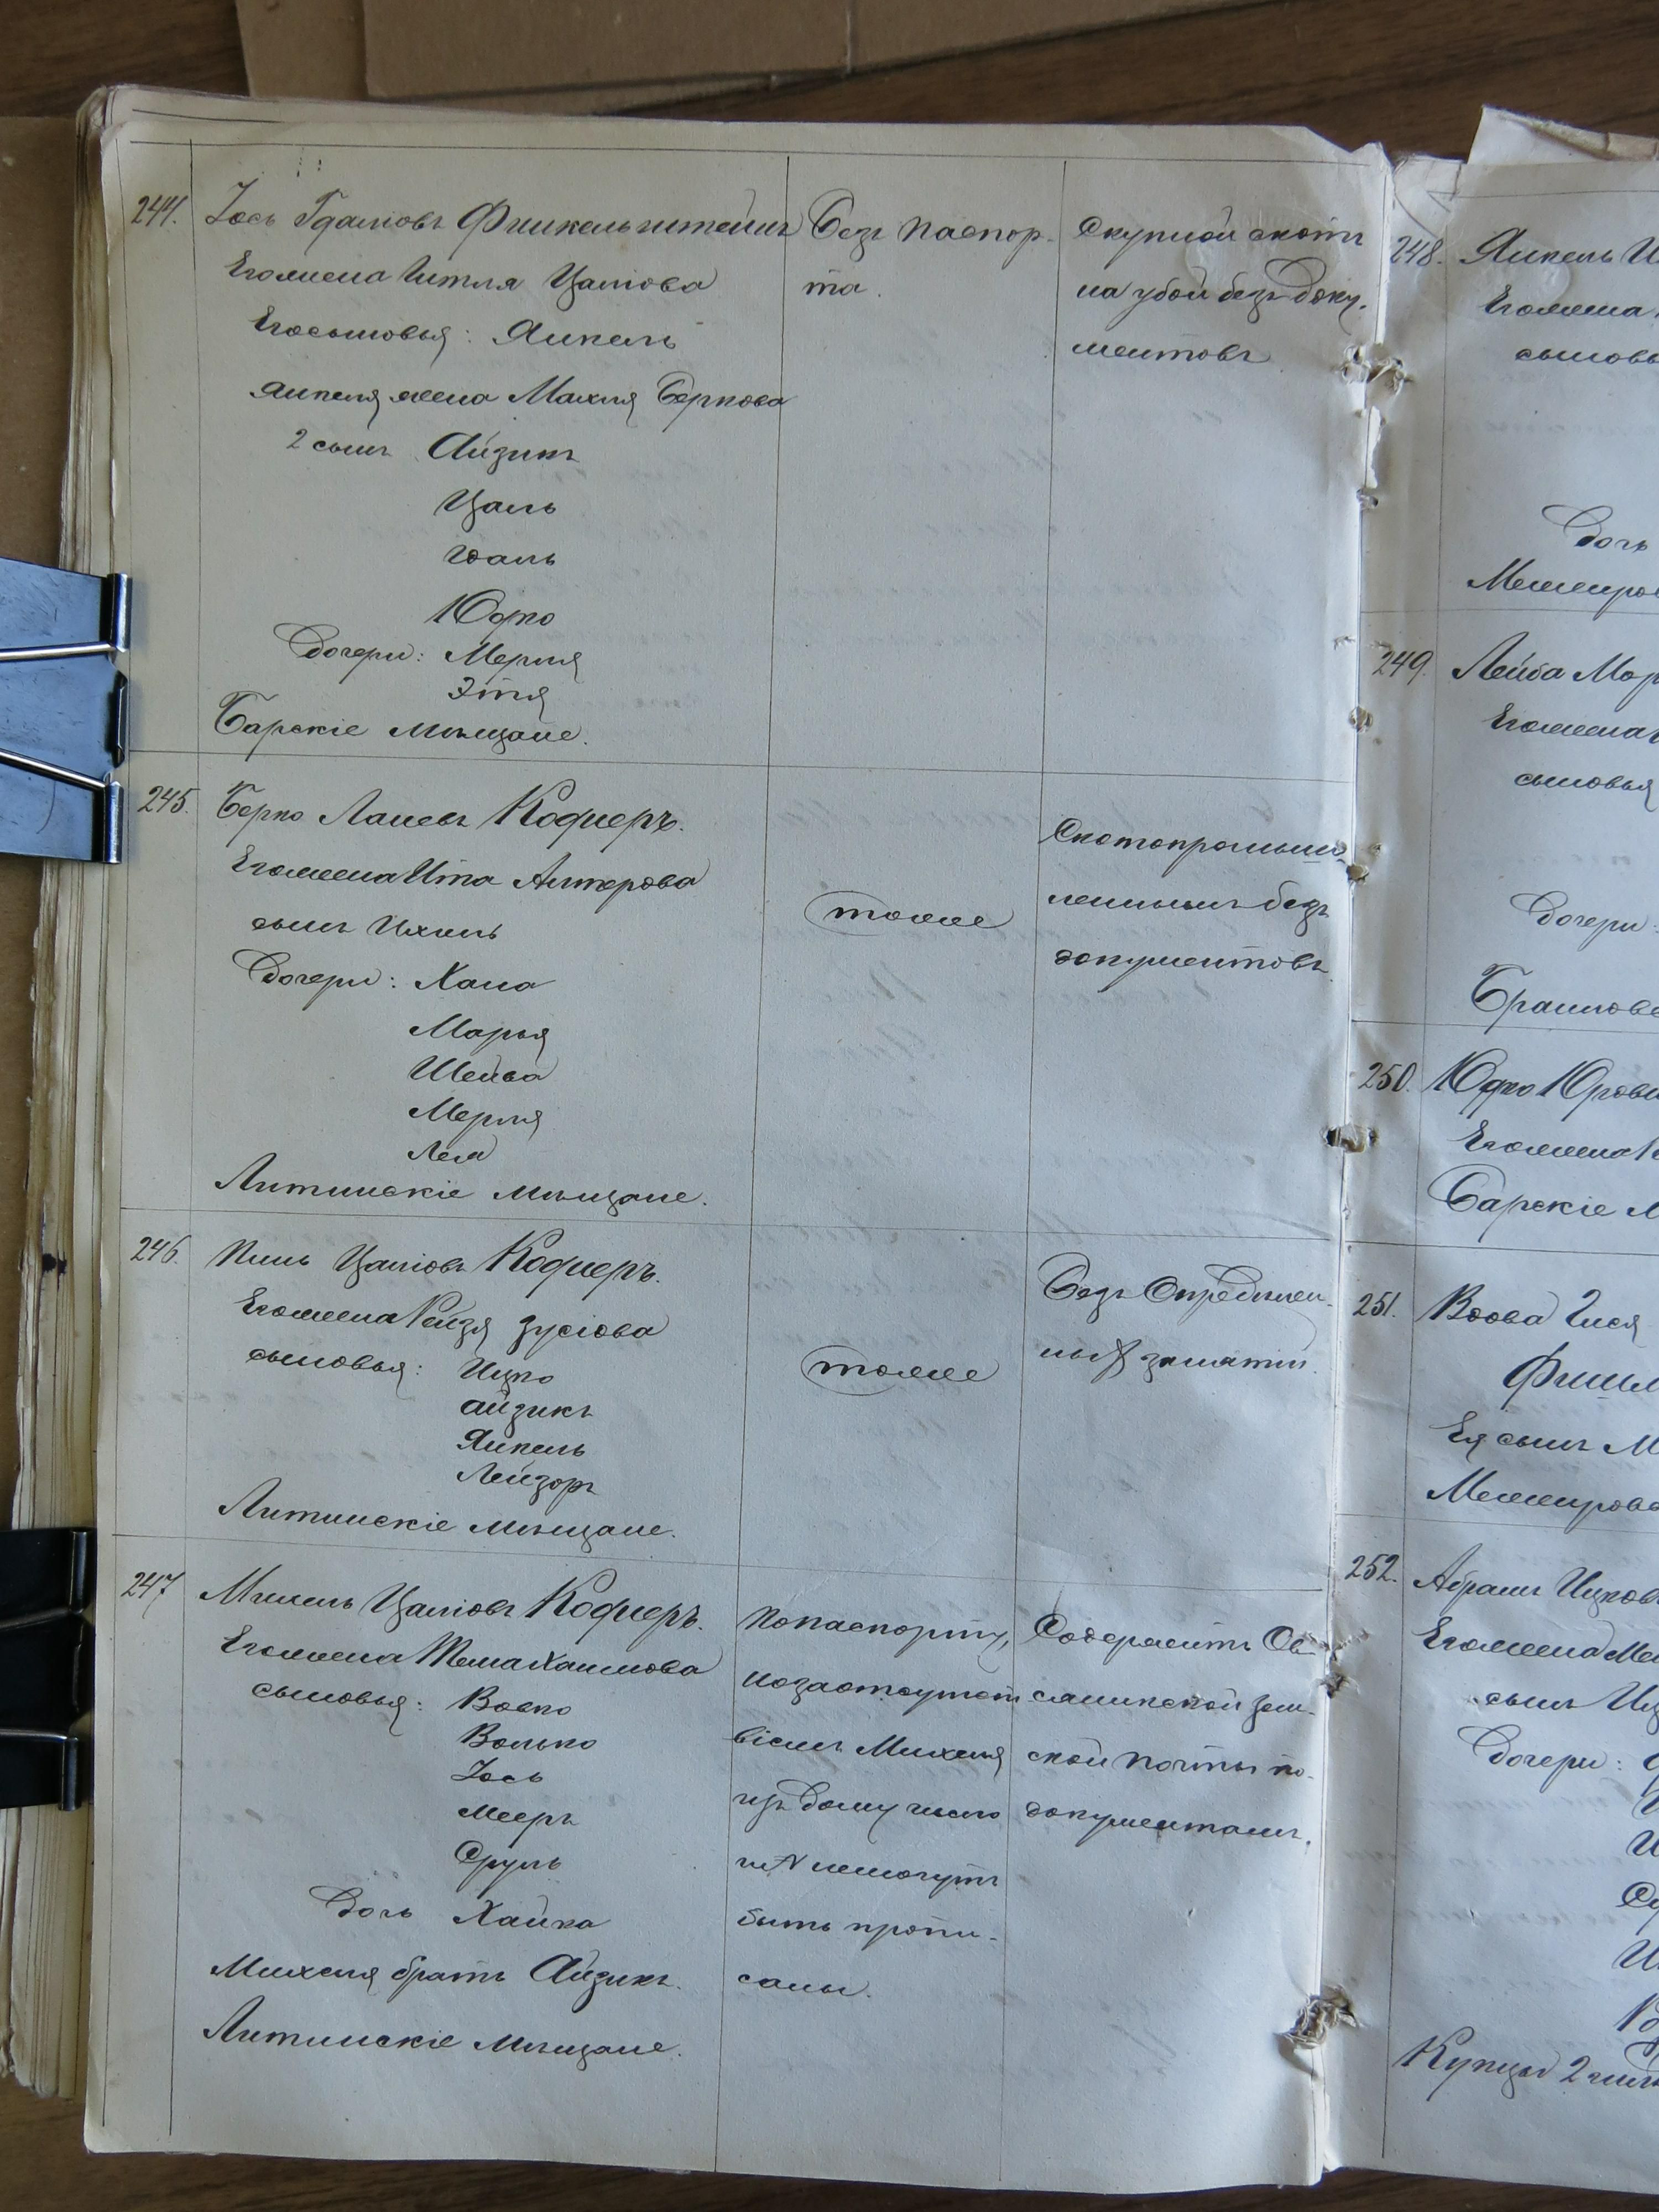 244. Іось Гдаліовъ Финкельштейнъ
Его жена Гитля Цаліова
Его сыновья: Янкель
Янкеля жена Махля Беркова
2 сынъ Айзикъ
Цаль
Юдко
Дочери: Мерля
Этя
Барскіе мѣщане.
Безъ паспор-
та.
Скупкой скота
на убой безъ доку-
ментовъ
245. Берко Ланевъ Кофнеръ.
Его жена Ита Алтерова
сынъ Ихиль
Дочери: Хана
Марья
Шейва
Мерля
Лея
Литинскіе мѣщане.
тоже
Скотопромыш-
леннымъ безъ
документовъ
246. Пинь Цаліовъ Кофнеръ.
Его жена Рейзя Зусіова
сыновья: Ицко
Айзикъ
Янкель
Лейзоръ
Литинскіе мѣщане.
тоже
Безъ опредѣлен-
ныхъ занятій.
247 Михель Цаліовъ Кофнеръ.
Его жена Тема Хаимова
сыновья: Вовко
Волько
Іось
Мееръ
Сруль
Дочь Хайка
Михеля братъ Айзикъ.
Литинскіе мѣщане.
По паспорту,
но за отсутст
віемъ Михеля
изъ дому число
и № немогутъ
быть пропи-
саны.
Содержитъ Ов-
сяникской зем-
ской почты по
документамъ.
248. Янкель
Его жена
сыновь
Дочь
Межиро
249. Лейба Мор
Его жена
сыновья
Дочери
Браилов
250. Юдко Юрови
Его жена
Барскіе
251. Вдова Гися
Ея сынъ М
Межиров
252. Абрамъ Ицков
Его жена Ме
сынъ Иц
Дочери:
Купцы 2